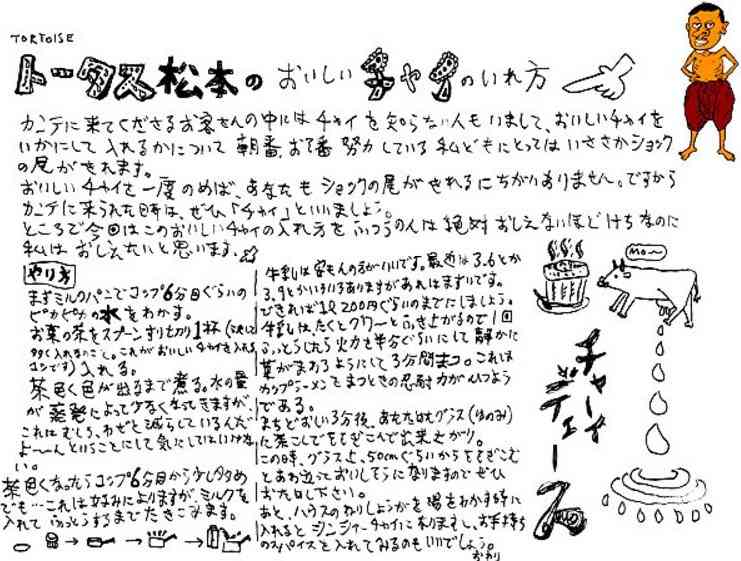 TORTOISE
トータス松本のおいしいチャイのいれ方
カンテに来てくださるお客さんの中にはチャイを知らない人もいまして、おいしいチャイを
いかにして入れるかについて朝番、お7番努力している私どもにとってはいささかショック
の尾がきれます。
おいしいチャイを一度のめば、あなたもショックの尾がきれるにちがいありません。ですから
カンテに来られた時は、ぜひ「チャイ」といいましょう。
ところで今回はこのおいしいチャイの入れ方をふつうの人は絶対おしえないほどけちなのに
私はおしえたいと思います。
やり方
まずミルクパンでコップ6分目ぐらいの
ピカピカの水をわかす。
お菓の茶をスプーンすり切り1杯(決して
多く入れるのこと。これがおいしいチャイを入れる
コツです)入れる。
茶色く色が出るまで煮る。水の量
が蒸発によって少なくなってきますが、
これはむしろ、わざと減らしているんだ
よ〜〜んということにして気にしてはいけな
い。
茶色くなったらコップ6分目から少し多め
でも…これは好みによりますが、ミルクを
入れてふっとうするまでたきこみます。
牛乳は安もんの方がいいです。最近は3.6とか
3.9とかいろいろありますがあれはまずいです。
できれば1ℓ200円ぐらいのまでにしましょう。
牛乳は、たくとグワーとふき上がるので1回
ふっとうしたら火力を半分ぐらいにして静かに
葉がまわるようにして3分間まつ。これは
カップラーメンをまつときの忍耐力がひつよう
である。
まちどおしい3分後、あなた日もグラス(ゆのみ)
に茶こしでもそそぎこんで出来上がり。
この時、グラス上、50cmぐらいからそそぎこむ
とあわ立っておいしそうになりますのでぜひ
おためし下さい。
あと、ハウスのねりしょうがを湯をわかす時に
入れるとジンジャーチャイになりますし、お手持ち
のスパイスを入れてみるのもいいでしょう。
おわり
mo〜
チャーイ